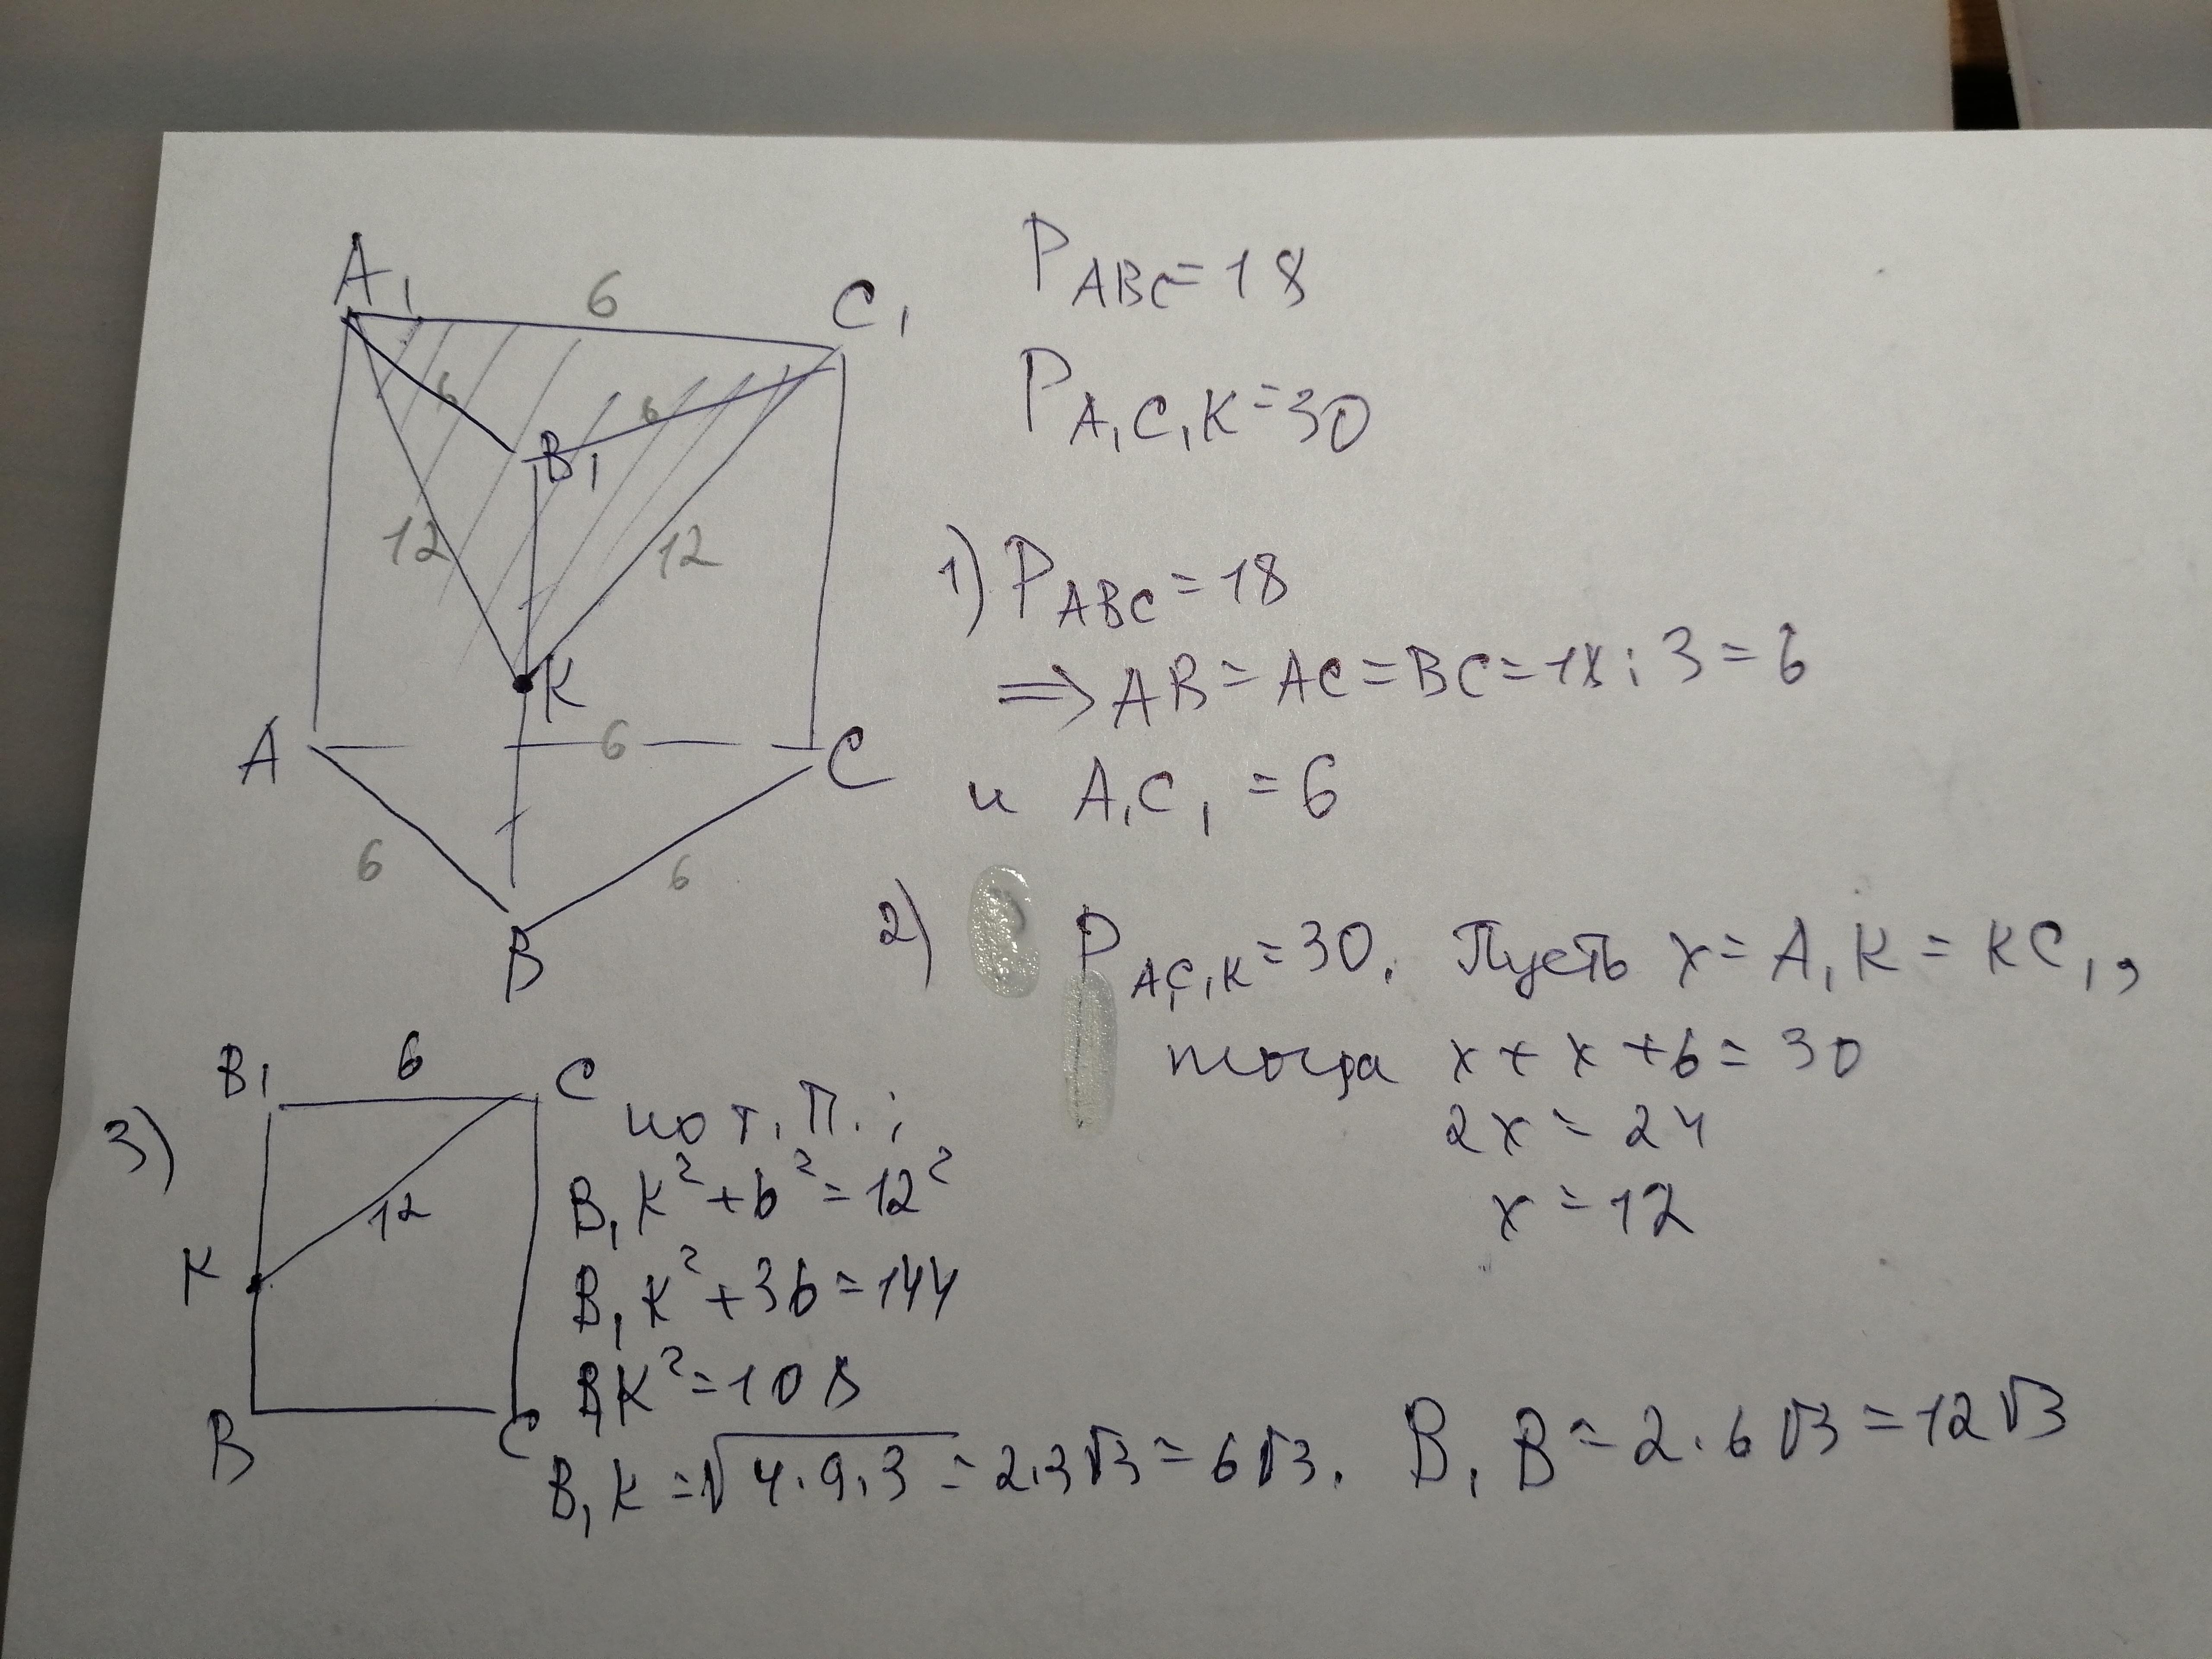 A₁ 6 C₁
6 6
B₁
12 12
K
A 6 C
6 6
B
P ABC = 18
P A₁C₁K = 30
1) P ABC = 18
⇒ AB = AC = BC = 18 : 3 = 6
и A₁C₁ = 6
2) P A₁C₁K = 30. Пусть x = A₁K = KC₁,
тогда x + x + 6 = 30
2x = 24
x = 12
3)
B₁ 6 C
12
K
B C
по т. П. :
B₁K² + 6² = 12²
B₁K² + 36 = 144
B₁K² = 108
B₁K = √4·9·3 = 2·3√3 = 6√3. B₁B = 2·6√3 = 12√3